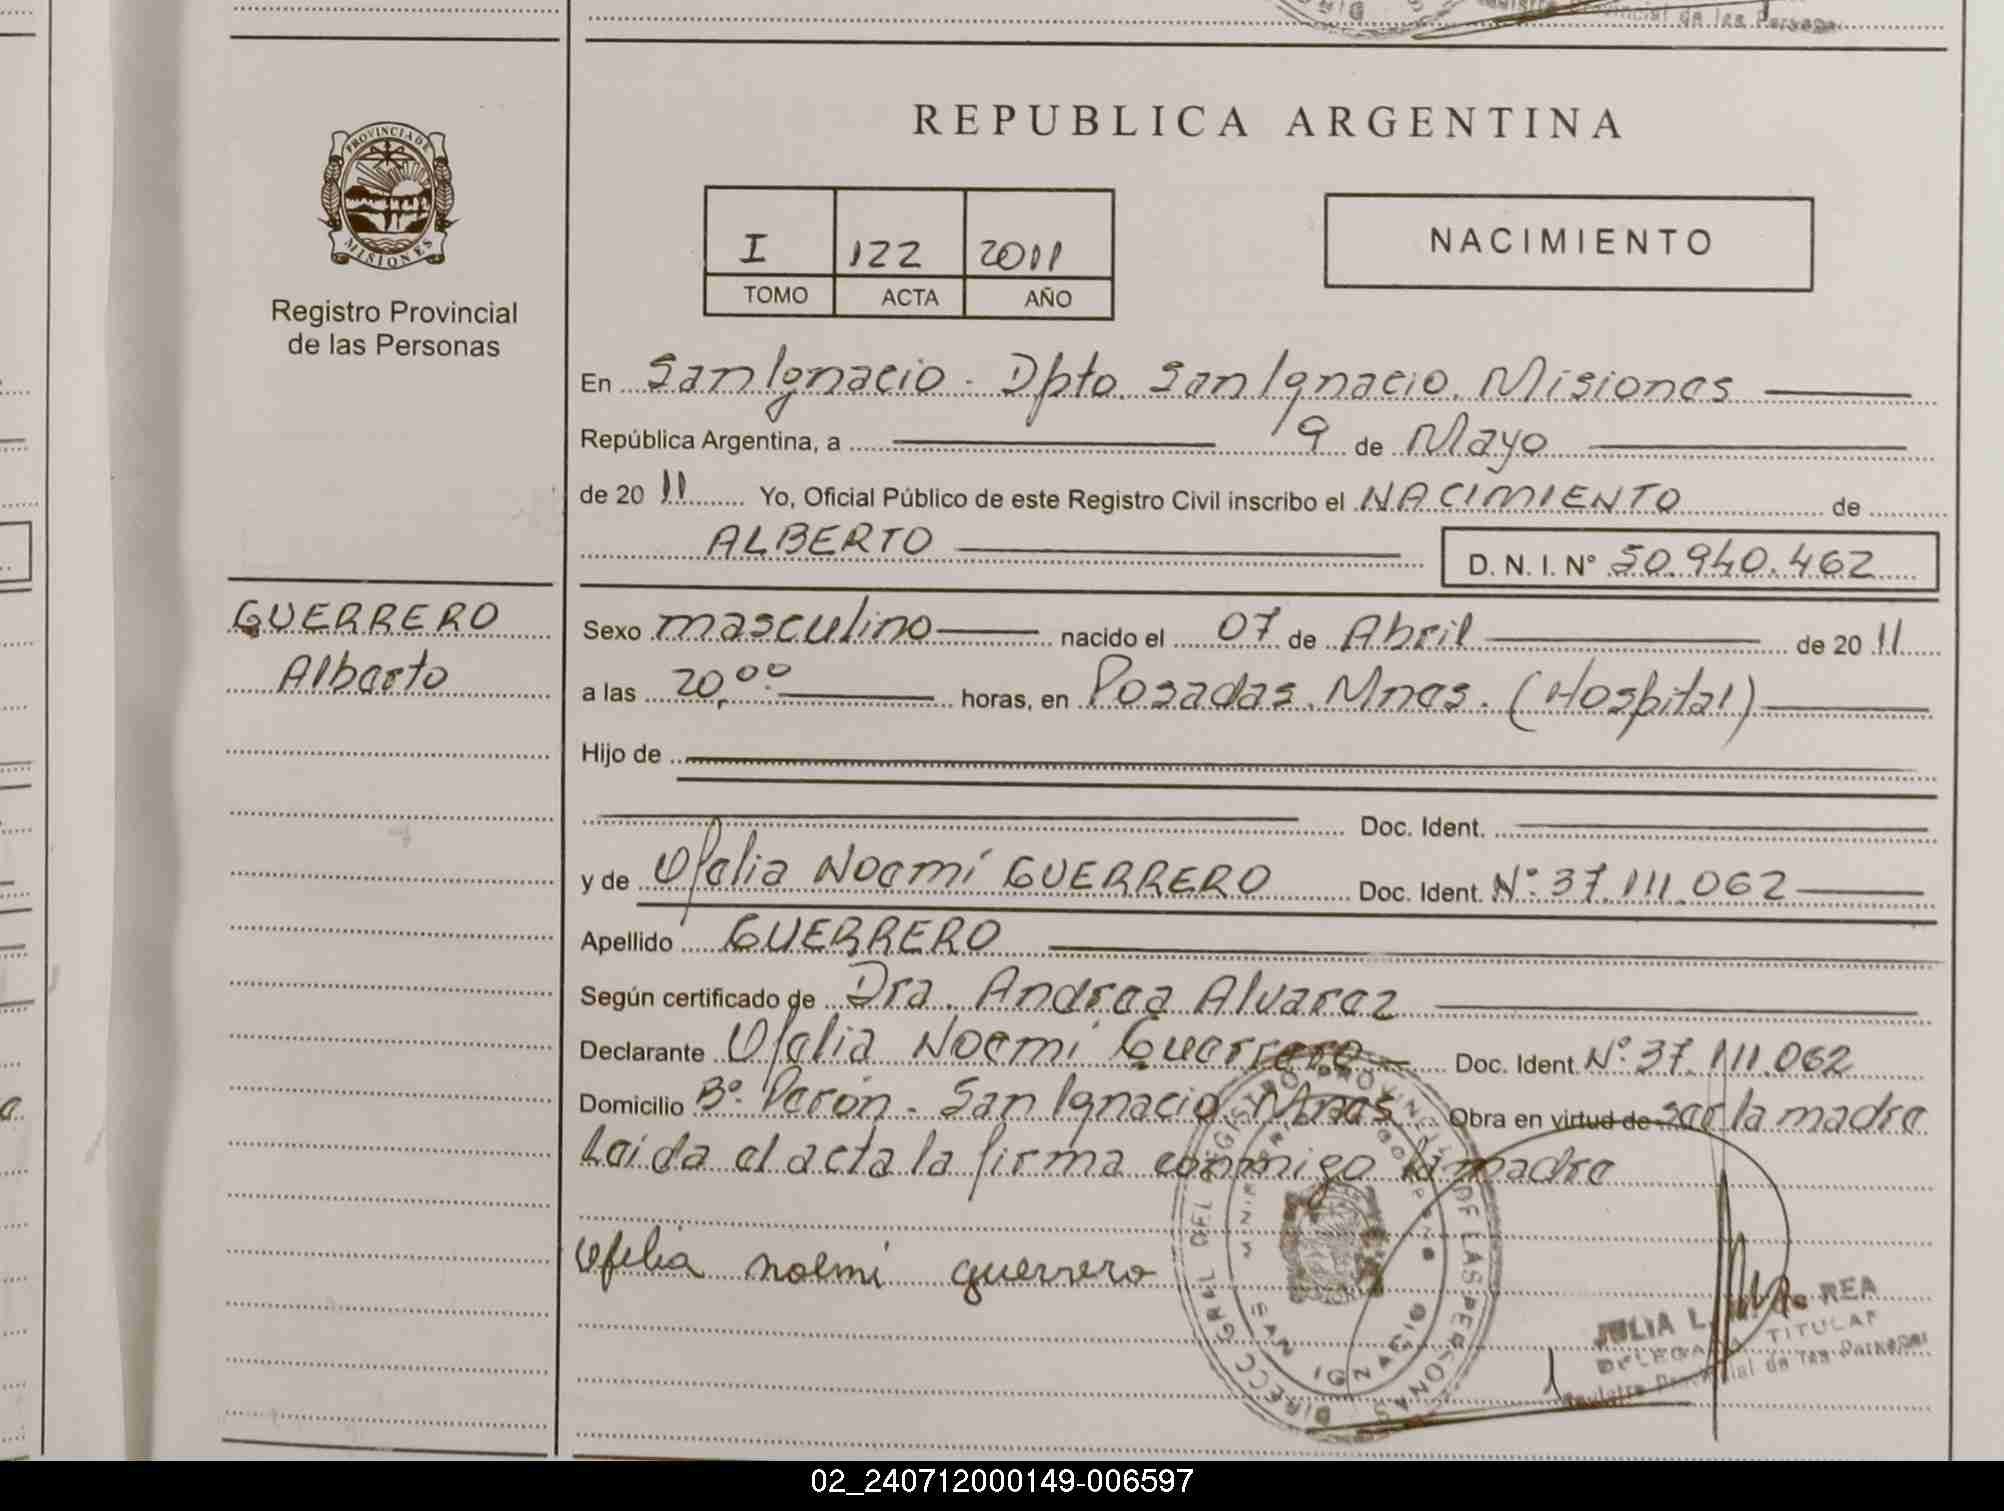 Registro Provincial de las Personas
REPUBLICA ARGENTINA
PROVINCIA DE
MISIONES
Registro Provincial
de las Personas
I 122 2011
TOMO ACTA AÑO
NACIMIENTO
En San Ignacio - Dpto. San Ignacio. Misiones
República Argentina, a 19 de Mayo
de 20 11 Yo, Oficial Público de este Registro Civil inscribo el NACIMIENTO de
ALBERTO D. N. I. N° 50.940.462
GUERRERO
Alberto
Sexo masculino nacido el 07 de Abril de 20 11
a las 20,00 horas, en Posadas. Mnes. (Hospital)
Hijo de
Doc. Ident.
y de Ofelia Noemí GUERRERO Doc. Ident. N°: 37.111.062
Apellido GUERRERO
Según certificado de Dra. Andrea Alvarez
Declarante Ofelia Noemi Guerrero Doc. Ident. N°: 37.111.062
Domicilio B°. Perón - San Ignacio. Mnes Obra en virtud de ser la madre
Leida el acta la firma conmigo la madre
Ofelia noemi guerrero
DIRECC. GRAL. DEL REGISTRO PROVINCIAL DE LAS PERSONAS
SAN IGNACIO
JULIA L. REA
DELEGADA TITULAR
Registro Provincial de las Personas
02_240712000149-006597